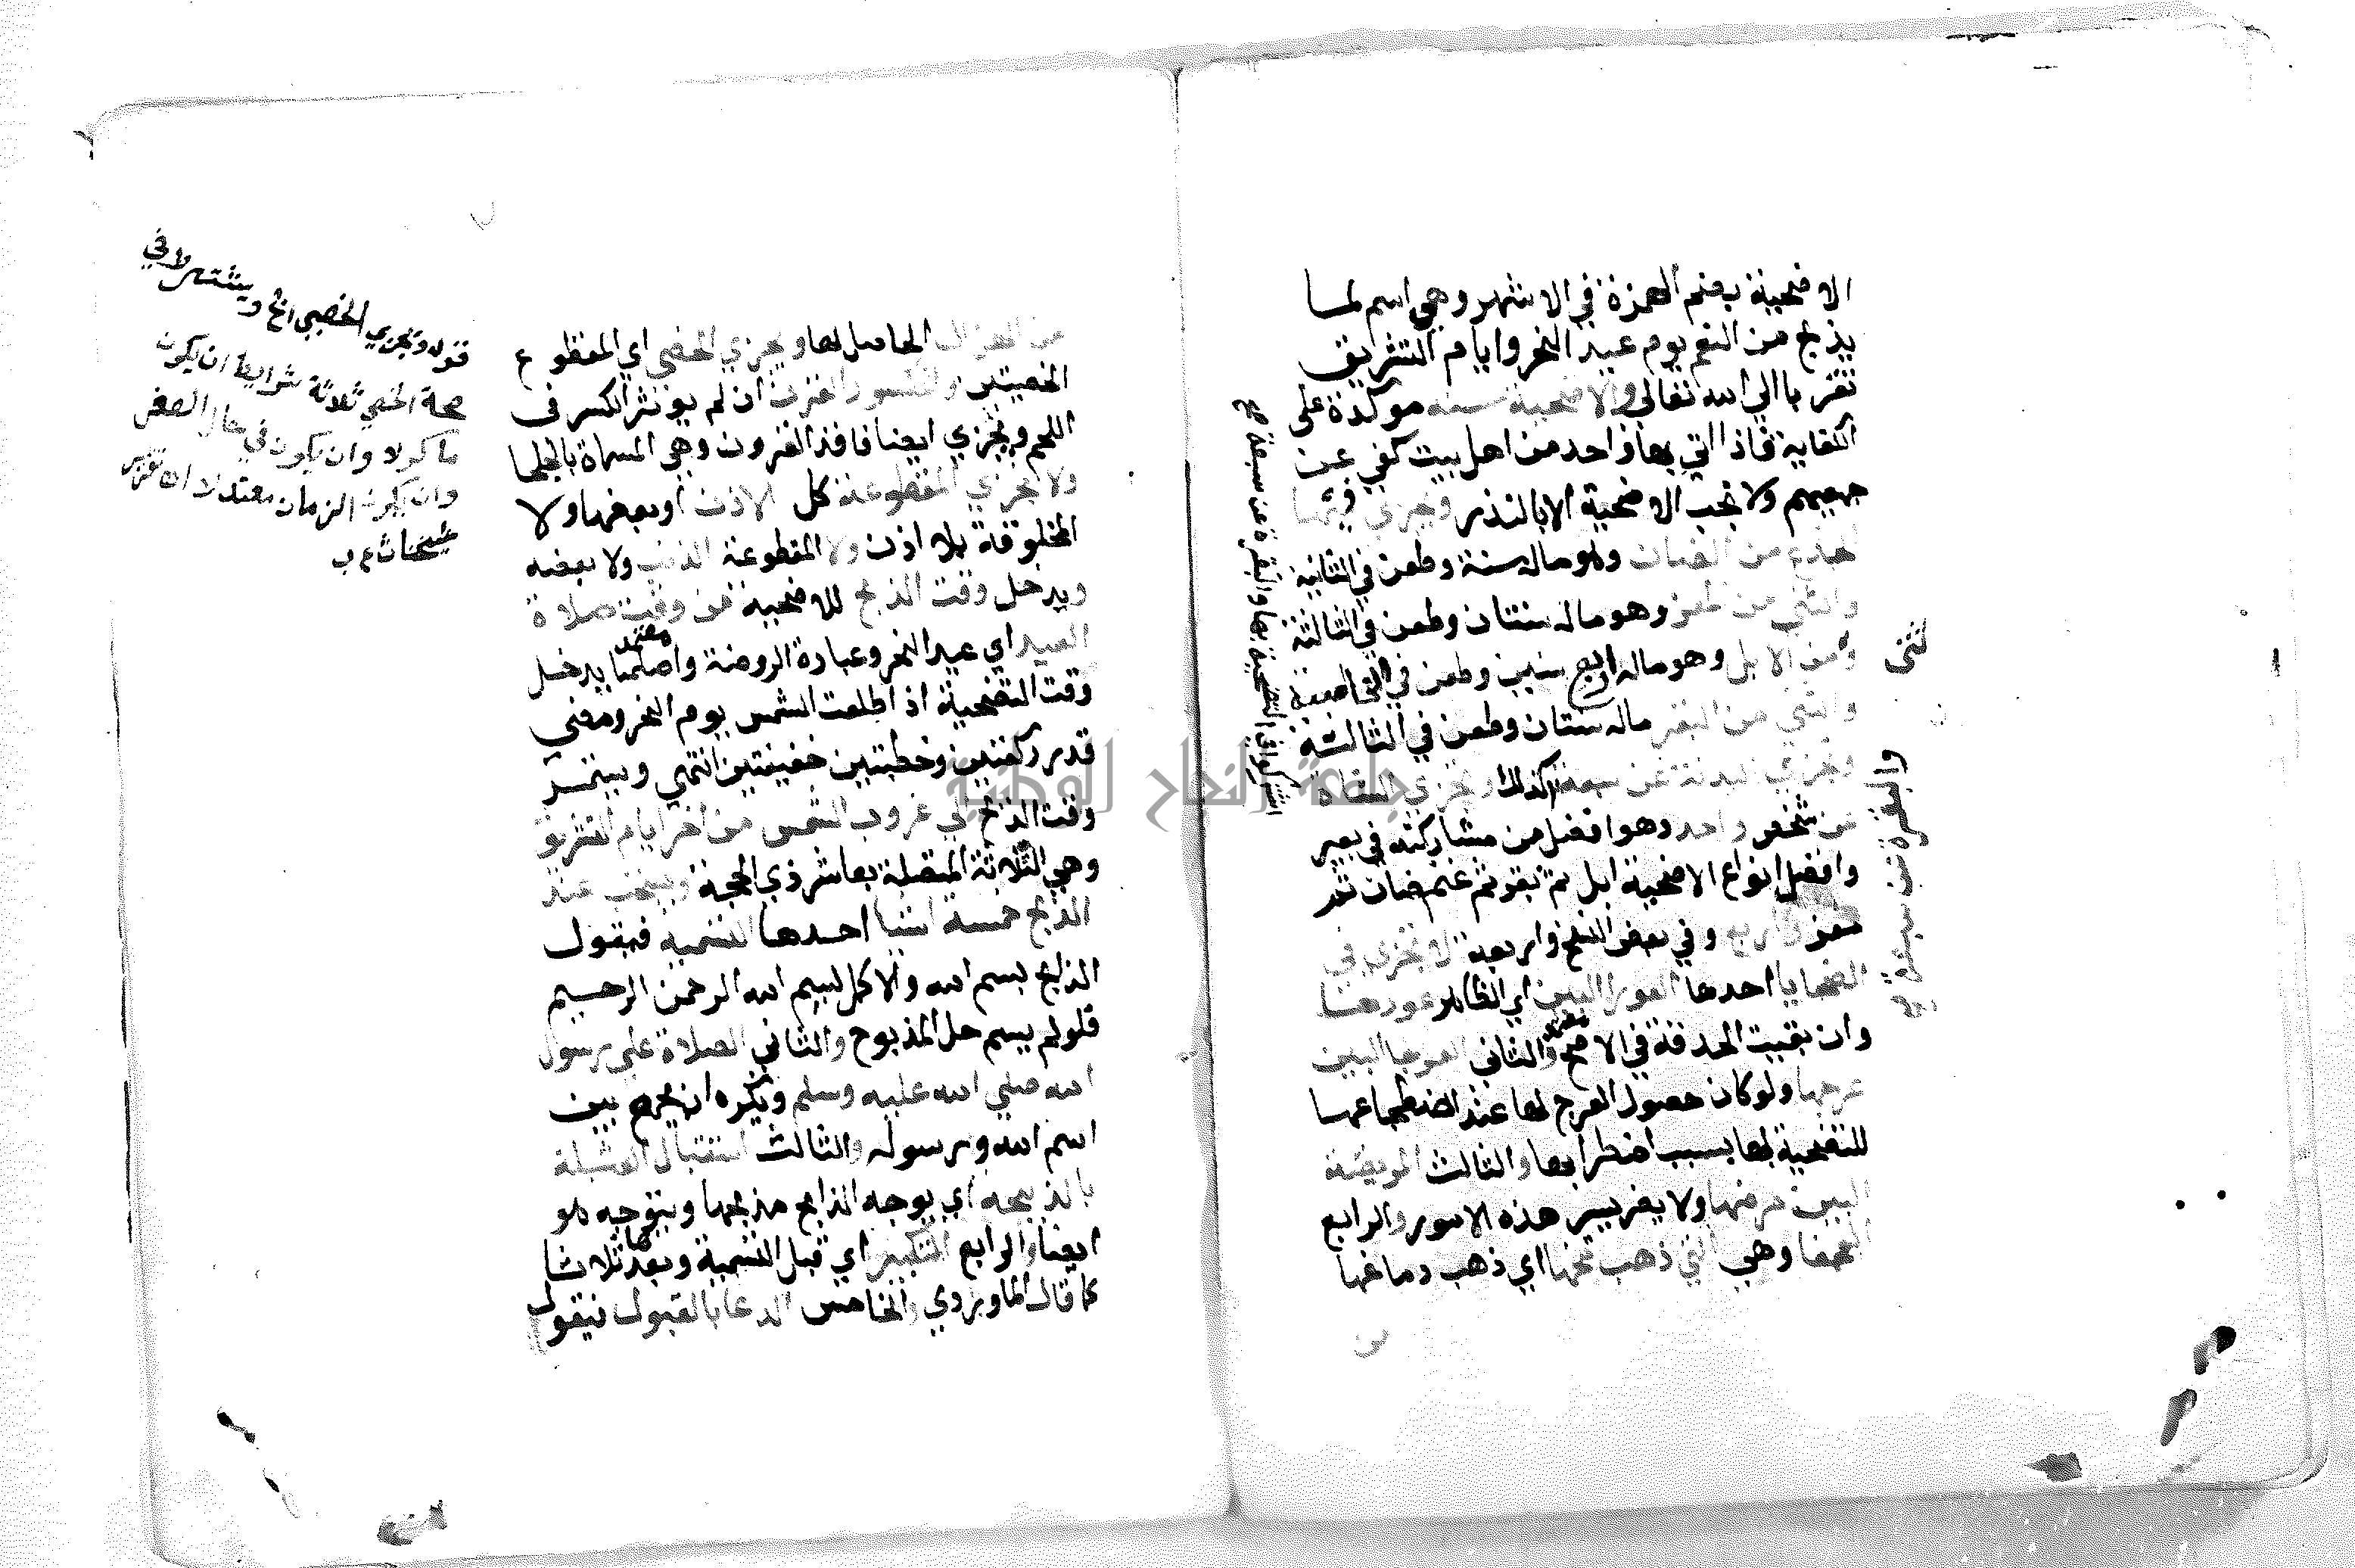 الاضحية بضم الهمزة في الاشهر وهي اسم لما
يذبح من النعم يوم عيد النحر وايام التشريق
تقربا الى الله تعالى والاضحية سنة موكدة على
الكفاية فاذا اتي بها واحد من اهل بيت كفي عن
جميعهم ولا تجب الاضحية الا بالنذر ويجزي فيها
الجذع من الضان وهو ماله سنة وطعن في الثانية
والثني من المعز وهو ماله سنتان وطعن في الثالثة
ومن الابل وهو ماله اربع سنين وطعن في الخامسة
والثني من البقر ماله سنتان وطعن في الثالثة
وتجزي البدنة عن سبعة كذلك وتجزي الشاة
عن شخص واحد وهو افضل من مشاركته في بعير
وافضل انواع الاضحية ابل ثم بقر ثم غنم ضان ثم
معز واربع وفي بعض النسخ واربعة لا تجزي في
الضحايا احدها العورا البين اي الظاهر عورها
وان بقيت الحدقة في الاصح والثاني العرجا البين
عرجها ولو كان حصول العرج لها عند اضطجاعها
للتضحية بها بسبب اضطرابها والثالث المريضة
البين مرضها ولا يضر يسير هذه الامور والرابع
العجفا وهي التي ذهب مخها اي ذهب دماغها
من
الثني
والبقرة عن سبعة
اشتركوا في التضحية بها والبقرة عن سبعة صح
من الهزال الحاصل لها ويجزي الخصي اي المقطوع
الخصيتين والمكسور القرن ان لم يوثر الكسر في
اللحم ويجزي ايضا فاقد القرون وهي المسماة بالجلحا
ولا تجزي المقطوعة كل الاذن او بعضها ولا
المخلوقة بلا اذن ولا المقطوعة الذنب ولا بعضه
ويدخل وقت الذبح للاضحية من وقت صلاة
العيد اي عيد النحر وعبارة الروضة واصلها يدخل
معتمد
وقت التضحية اذا طلعت الشمس يوم النحر ومضي
قدر ركعتين وخطبتين خفيفتين انتهي ويستمر
وقت الذبح الي غروب الشمس من اخر ايام التشريق
وهي الثلاثة المتصلة بعاشر ذي الحجة ويستحب عند
الذبح خمسة اشيا احدها التسمية فيقول
الذابح بسم الله والاكمل بسم الله الرحمن الرحيم
فلو لم يسم حل المذبوح والثاني الصلاة على رسول
الله صلي الله عليه وسلم ويكره ان يجمع بين
اسم الله ورسوله والثالث استقبال القبلة
بالذبيحه اي يوجه الذابح مذبحها ويتوجه هو
ايضا والرابع التكبير اي قبل التسمية وبعدها ثلاثا
كما قال الماوردي والخامس الدعا بالقبول فيقول
قوله ويجزي الخصي الخ ويشترط في
صحة الخصي ثلاثة شرايط ان يكون
ماكولا وان يكون في حال الصغر
وان يكون الزمان معتدلا اه تقرير
شيخنا ع ب
جامعة النجاح الوطنية